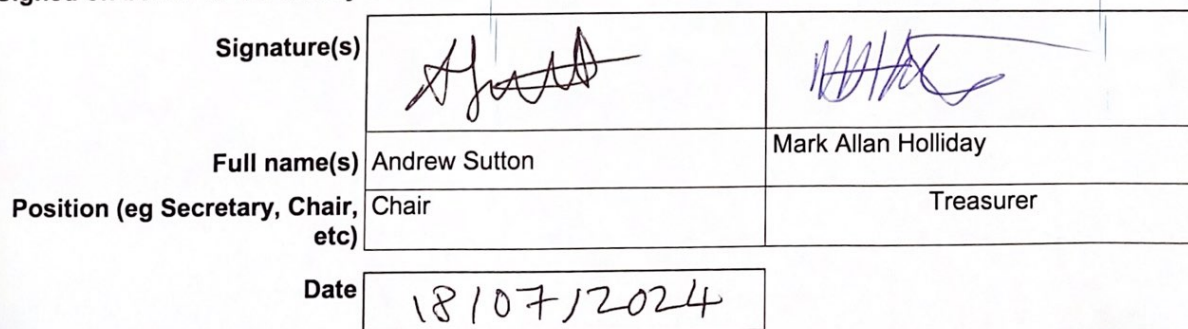 Signature(s)
Full name(s) Andrew Sutton Mark Allan Holliday
Position (eg Secretary, Chair, Chair Treasurer
etc)
Date 18/07/2024